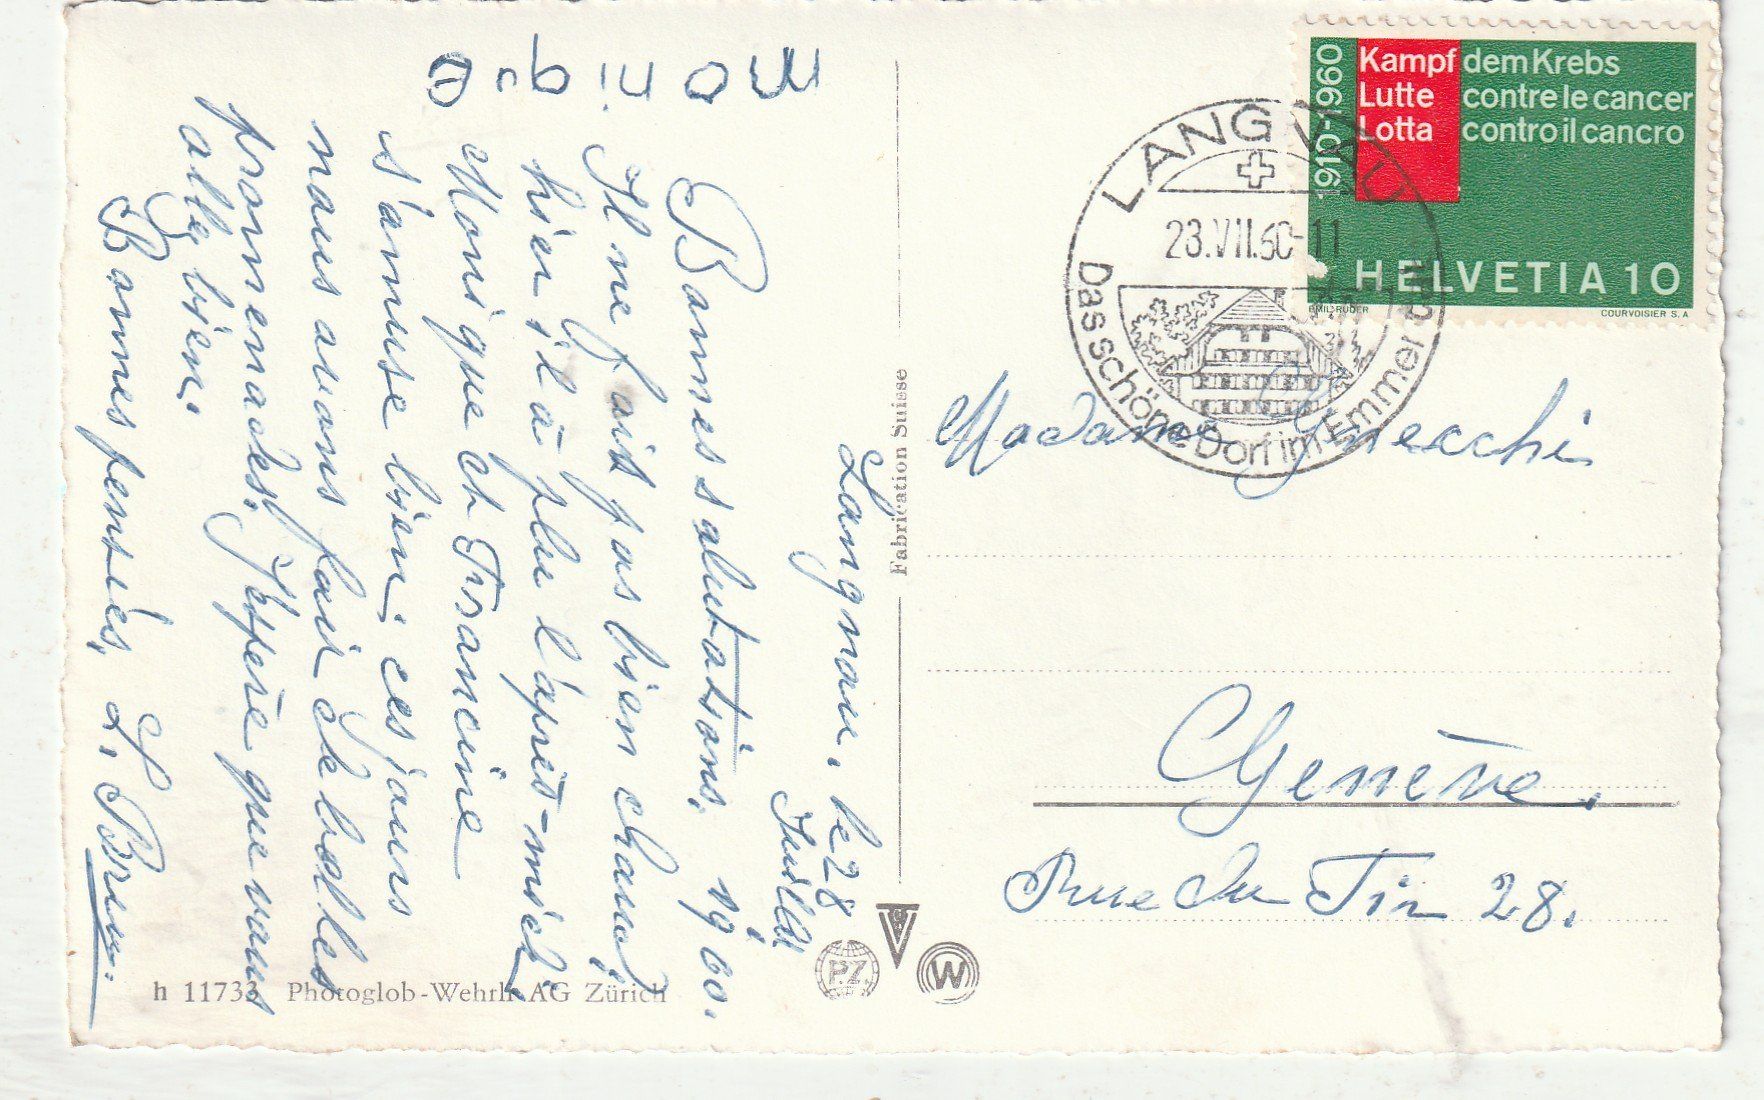 monique
Langnau, le 28
Juillet
1960.
Bonnes salutations,
Il ne fait pas bien chaud,
hier il à plu l'après-midi.
Monique et Francine
s'amuse bien, ces jours
nous avons fait de belles
promenades. J'éspère que vous
allg bien.
Bonnes pensées,
L. Brun.
Fabrication Suisse
h 11733 Photoglob-Wehrli AG Zürich
P.Z.
W
1910-1960
Kampf dem Krebs
Lutte contre le cancer
Lotta contro il cancro
HELVETIA 10
EMIL RUDER
COURVOISIER S.A
LANGNAU
23.VII.60-11
Das schöne Dorf im Emmental
Madame Gnecchi
Genève.
Rue du Tir 28.